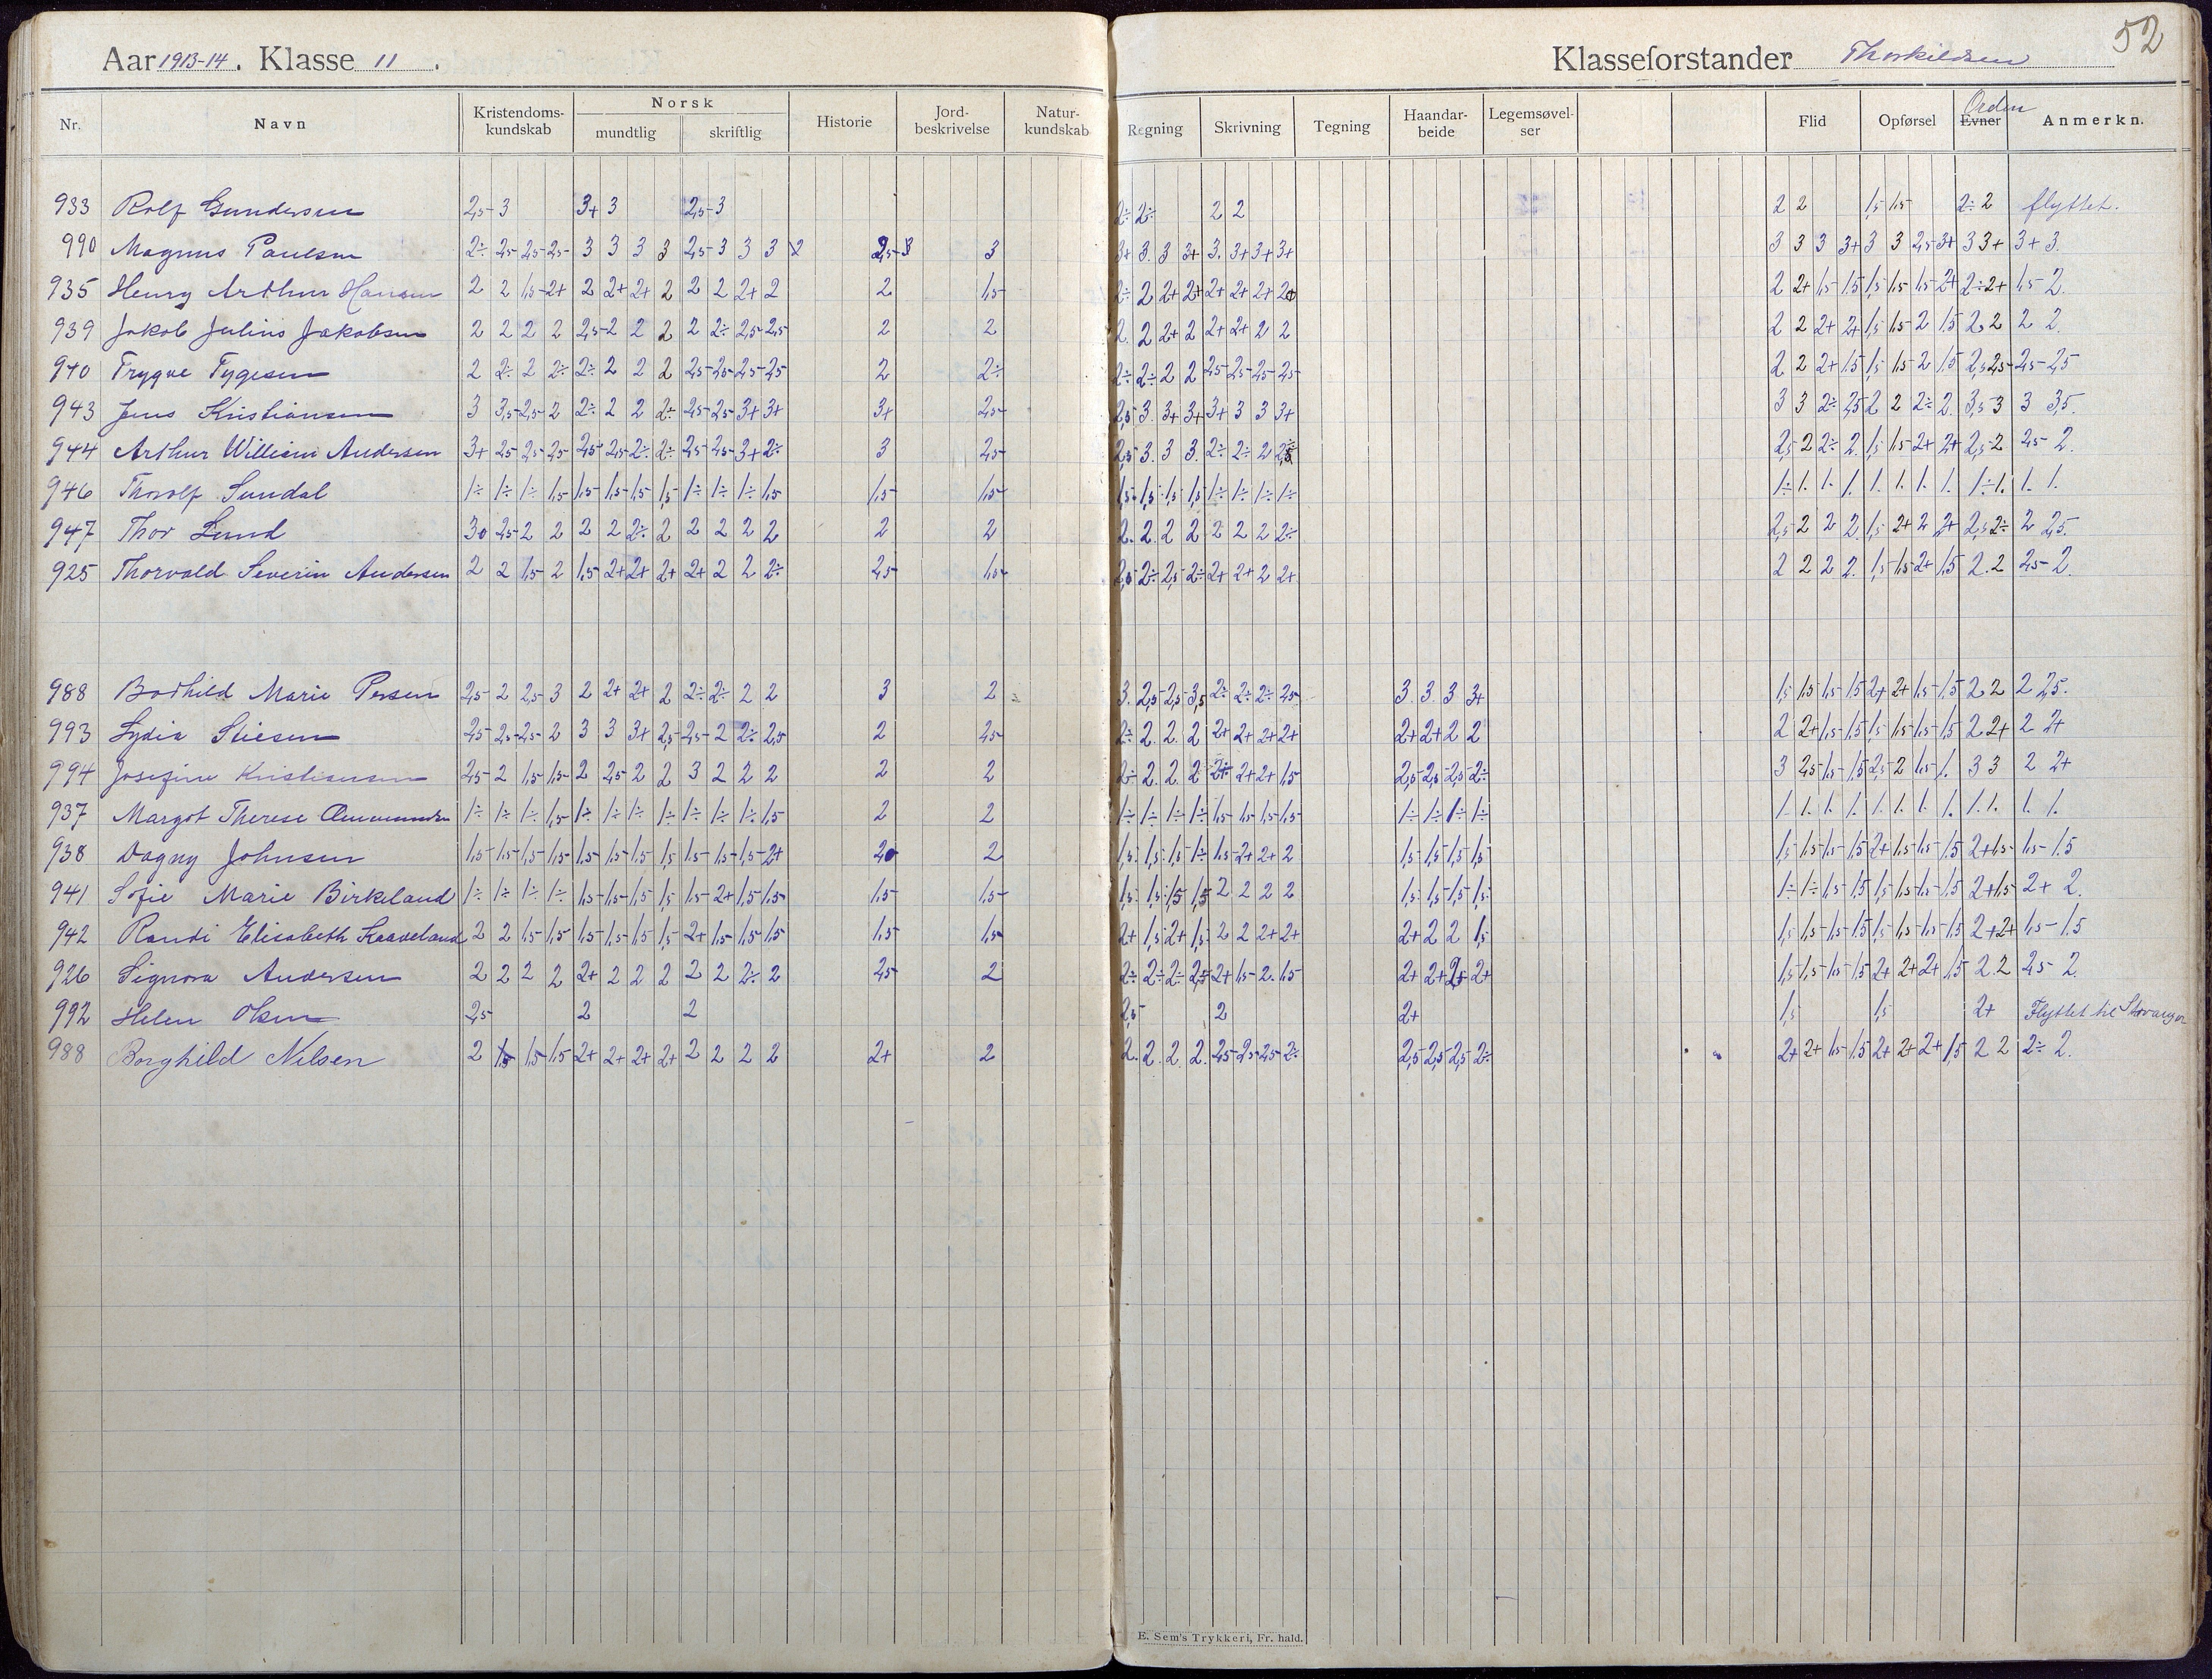 52
Aar 1913-14. Klasse 11. Klasseforstander Thorkildsen
Nr. Navn Kristendoms-kundskab Norsk mundtlig skriftlig Historie Jord-beskrivelse Natur-kundskab Regning Skrivning Tegning Haandar-beide Legemsøvel-ser Flid Opførsel Evner Orden Anmerkn.
933 Rolf Gundersen 2,5- 3 3+ 3 2,5- 3 2÷ 2÷ 2 2 2 2 1,5 1,5- 2÷ 2 flyttet.
990 Magnus Paulsen 2÷ 2,5- 2,5- 2,5- 3 3 3 3 2,5- 3 3 3 3 3+ 3. 3 3+ 3. 3+ 3+ 3+ 3 3 3 3+ 3 3 2,5 3+ 3 3+ 3+ 3.
935 Henry Arthur Hansen 2 2 1,5- 2+ 2 2+ 2+ 2 2 2 2+ 2 2 1,5- 2÷ 2 2+ 2+ 2+ 2+ 2+ 2 2+ 1,5- 1,5 1,5 1,5 1,5 2+ 2÷ 2+ 1,5- 2.
939 Jakob Julius Jakobsen 2 2 2 2 2,5- 2 2 2 2 2÷ 2,5- 2,5- 2 2 2. 2 2+ 2 2+ 2+ 2 2 2 2 2+ 2+ 1,5 1,5 2 1,5 2 2 2 2.
940 Trygve Tygesen 2 2÷ 2 2÷ 2÷ 2 2 2 2,5- 2,5- 2,5- 2,5 2 2÷ 2÷ 2÷ 2 2 2,5- 2,5- 2,5- 2,5- 2 2 2+ 1,5 1,5 1,5 2 1,5 2,5 2,5- 2,5- 2,5
943 Jens Kristiansen 3 3,5- 2,5- 2 2÷ 2 2 2÷ 2,5- 2,5- 3+ 3+ 3+ 2,5- 2,5 3. 3+ 3+ 3+ 3 3 3+ 3 3 2÷ 2,5 2 2 2÷ 2. 3,5 3 3 3,5.
944 Arthur William Andersen 3+ 2,5- 2,5- 2,5- 2,5- 2,5- 2÷ 2÷ 2,5- 2,5- 3+ 2÷ 3 2,5- 2,5 3. 3 3. 2÷ 2÷ 2 2,5 2 2÷ 2. 1,5 1,5 2+ 2+ 2,5 2 2,5- 2.
946 Thorolf Sundal 1÷ 1÷ 1÷ 1,5 1,5- 1,5- 1,5 1,5 1÷ 1÷ 1÷ 1,5 1,5- 1,5- 1,5. 1,5 1,5 1,5 1÷ 1÷ 1÷ 1÷ 1÷ 1. 1. 1. 1. 1. 1. 1. 1÷ 1. 1. 1.
947 Thor Lund 2,5- 2 2 2 2 2÷ 2 2 2 2 2 2 2 2. 2. 2 2 2 2 2 2÷ 2,5 2 2 2. 1,5 2+ 2 2+ 2,5 2÷ 2 2,5.
925 Thorvald Severin Andersen 2 2 1,5- 2 1,5 2+ 2+ 2+ 2+ 2 2 2÷ 2,5- 1,5- 2,5 2÷ 2,5 2÷ 2+ 2+ 2 2+ 2 2 2 2. 1,5 1,5 2+ 1,5 2. 2 2,5- 2.
988 Bodhild Marie Persen 2,5- 2 2,5 3 2 2+ 2+ 2 2÷ 2÷ 2 2 3 2 3. 2,5 2,5 3,5 2÷ 2÷ 2÷ 2,5- 3. 3. 3 3+ 1,5 1,5 1,5 1,5 2+ 2+ 1,5 1,5 2 2 2 2,5.
993 Lydia Stiesen 2,5- 2,5- 2,5- 2 3 3 3+ 2,5 2,5- 2 2÷ 2,5 2 2,5- 2÷ 2. 2. 2 2+ 2+ 2+ 2+ 2+ 2+ 2 2 2 2+ 1,5 1,5 1,5 1,5 1,5 1,5 2 2+ 2 2+
994 Josefine Kristiansen 2,5- 2 1,5 1,5- 2 2,5- 2 2 3 2 2 2 2 2 2÷ 2. 2. 2 2+ 2+ 1,5 2,5 2,5 2,5 2÷ 3 2,5- 1,5 1,5 2,5 2 1,5 1. 3 3 2 2+
937 Margot Therese 1÷ 1÷ 1÷ 1,5 1÷ 1÷ 1÷ 1÷ 1÷ 1÷ 1÷ 1,5 2 2 1÷ 1÷ 1÷ 1÷ 1,5 1,5 1,5 1,5 1÷ 1÷ 1÷ 1÷ 1. 1. 1. 1. 1. 1. 1. 1. 1. 1. 1. 1.
938 Dagny Johnsen 1,5- 1,5- 1,5- 1,5- 1,5- 1,5- 1,5 1,5 1,5- 1,5- 1,5- 2+ 2 1,5 1,5 1,5 1÷ 1,5 2+ 2+ 2 1,5 1,5 1,5 1,5 1,5 1,5 1,5 1,5 2+ 1,5 1,5 1,5 2+ 1,5- 1,5- 1,5
941 Sofie Marie Birkeland 1÷ 1÷ 1÷ 1÷ 1,5- 1,5- 1,5 1,5 1,5- 2+ 1,5 1,5 1,5- 1,5- 1,5 1,5 1,5 1,5 2 2 2 2 1,5 1,5 1,5 1,5 1÷ 1÷ 1,5 1,5 1,5 1,5 1,5 1,5 2+ 1,5 2+ 2.
942 Randi Elisabeth Kaaveland 2 2 1,5 1,5 1,5- 1,5- 1,5 1,5 2+ 1,5 1,5 1,5 1,5- 1,5- 2+ 1,5 2+ 1,5 2 2 2+ 2+ 2+ 2 2 1,5 1,5 1,5 1,5 1,5 1,5 1,5 1,5 1,5 2+ 2+ 1,5- 1,5
926 Signora Andersen 2 2 2 2 2+ 2 2 2 2 2 2÷ 2 2,5- 2 2÷ 2÷ 2÷ 2,5 2+ 1,5 2. 1,5 2+ 2+ 2+ 2+ 1,5 1,5 1,5 1,5 2+ 2+ 2+ 1,5 2. 2 2,5- 2.
992 Helen Olsen 2,5- 2 2 2,5 2 2+ 1,5 1,5 2+ Flyttet til Stavanger
988 Borghild Nilsen 2 1,5 1,5 1,5 2+ 2+ 2+ 2+ 2 2 2 2 2+ 2 2. 2. 2 2. 2,5 2,5 2,5 2÷ 2,5 2,5 2,5 2÷ 2+ 2+ 1,5 1,5 2+ 2+ 2+ 1,5 2 2 2÷ 2.
E. Sem's Trykkeri, Fr. hald.